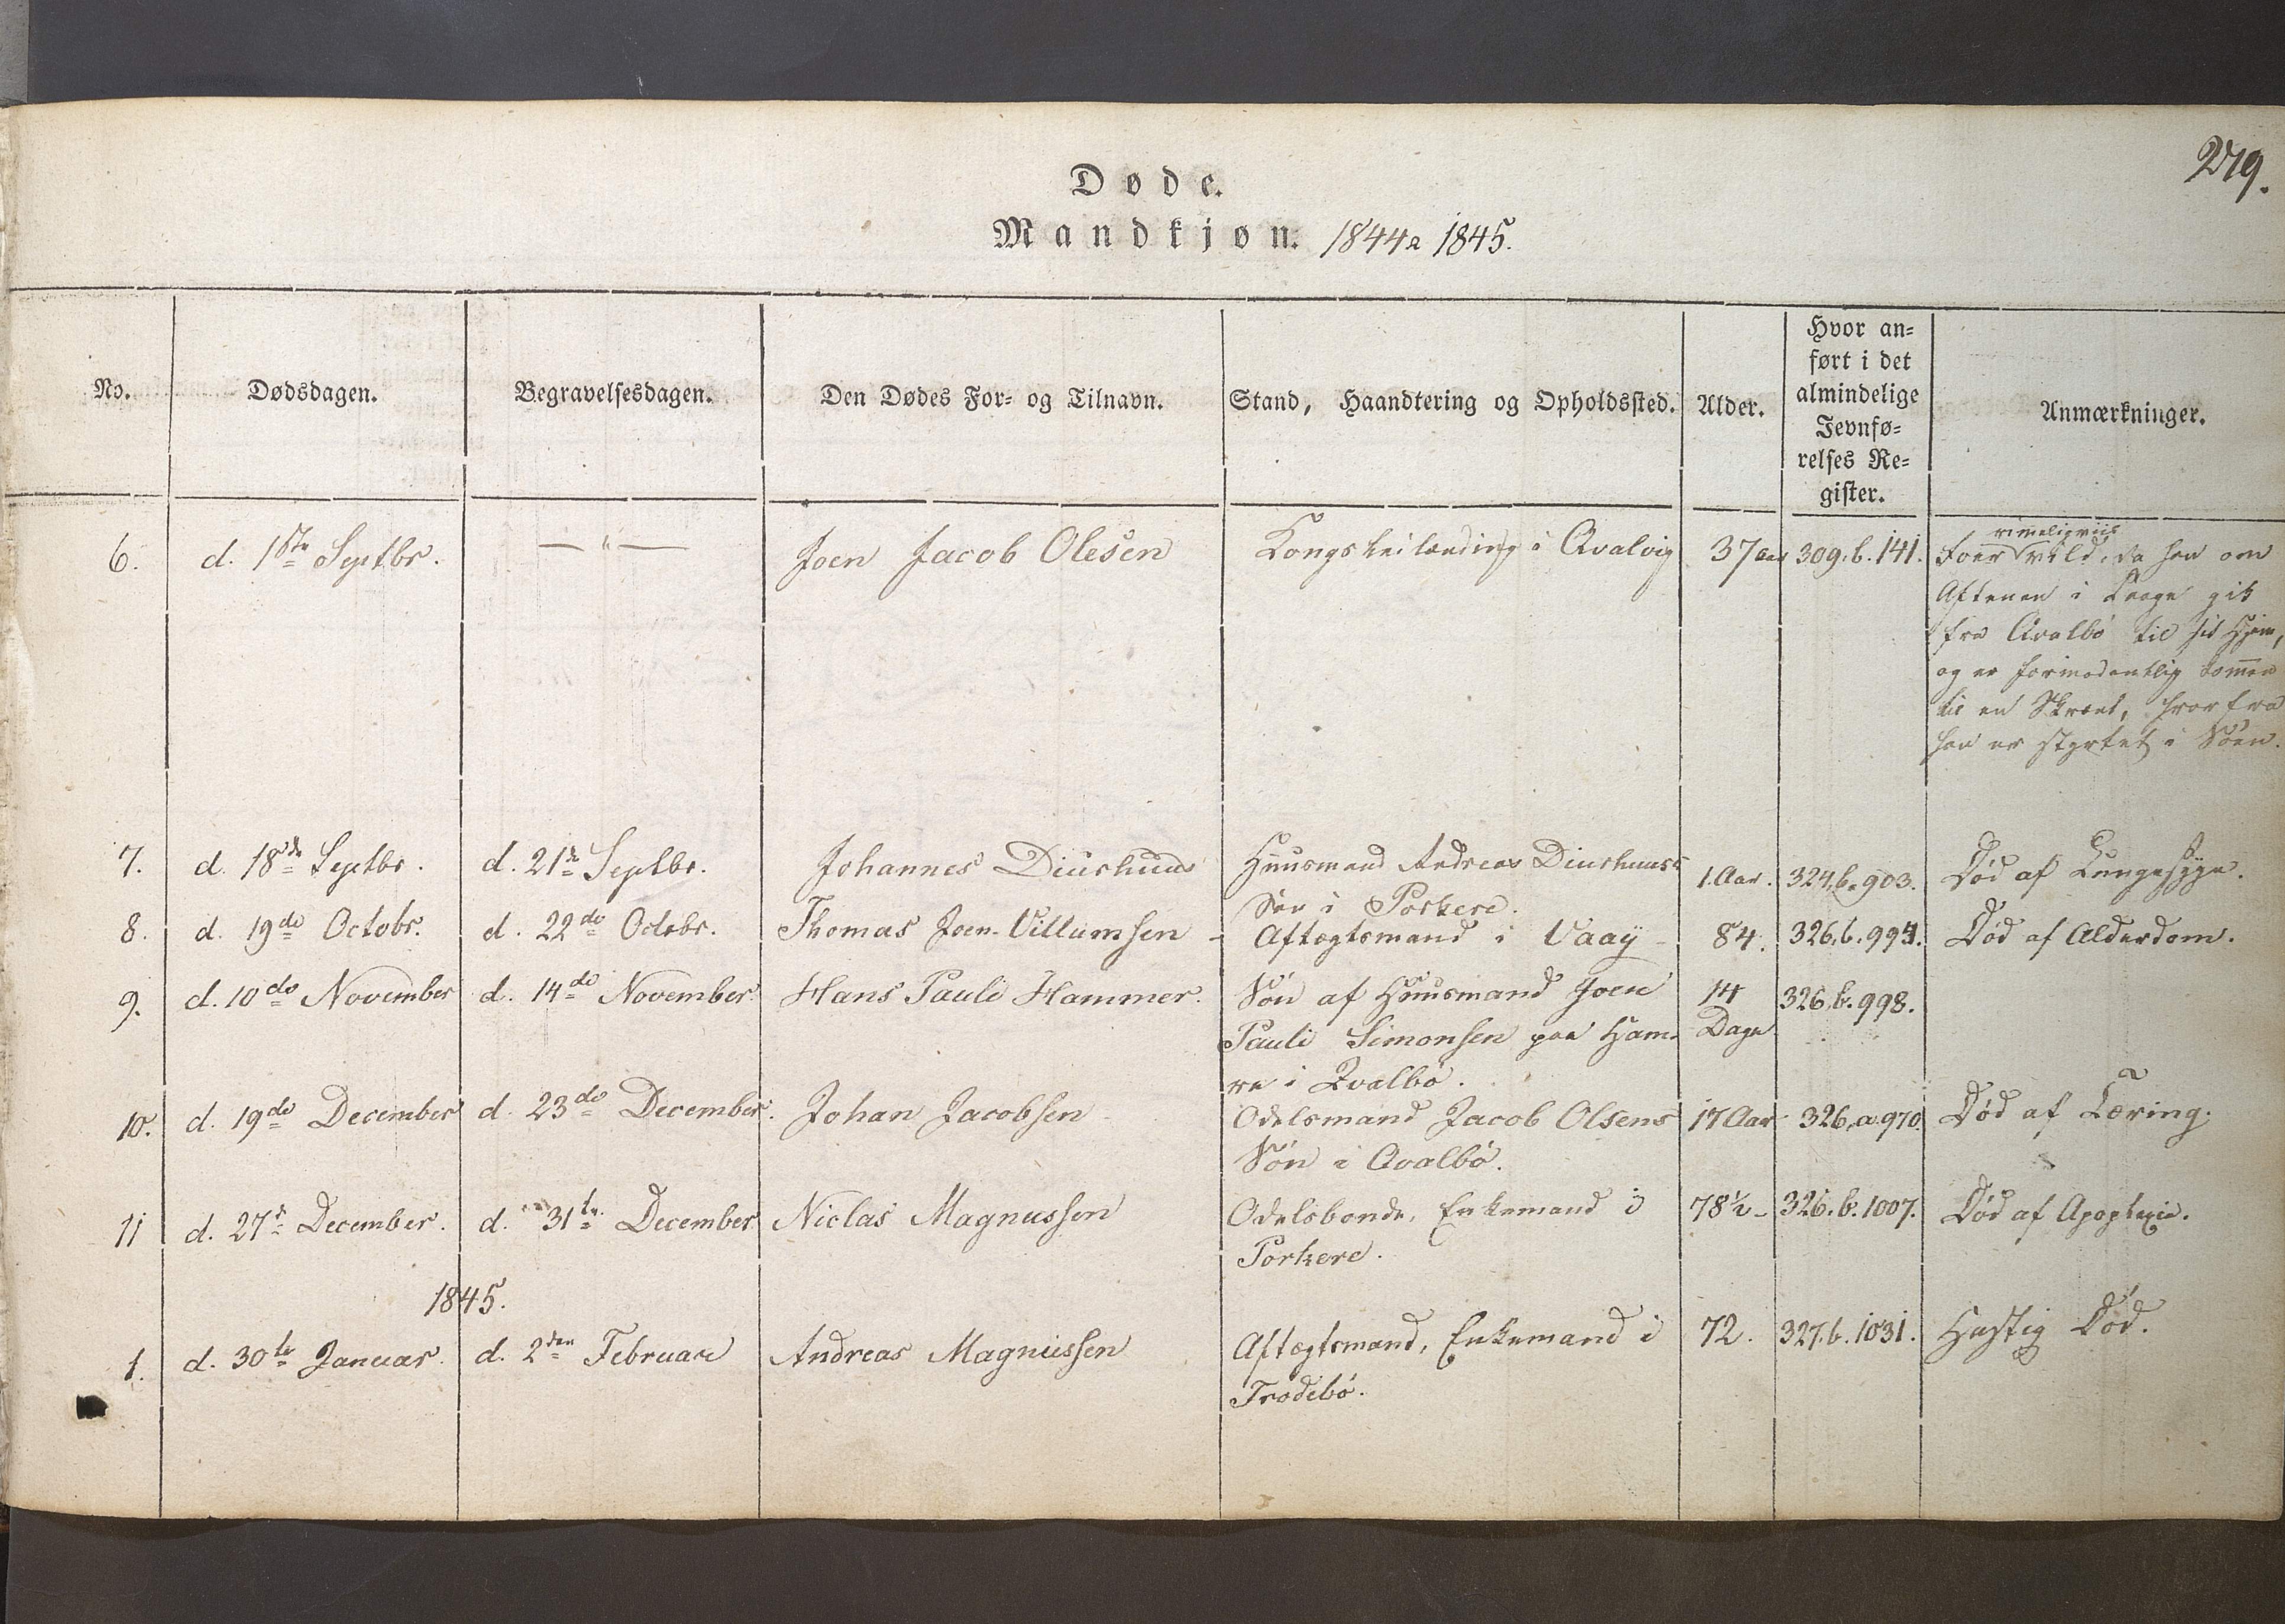 279.
Døde.
Mandkjøn. 1844 & 1845.
No. Dødsdagen. Begravelsesdagen. Den Dødes For- og Tilnavn. Stand, Haandtering og Opholdssted. Alder. Hvor an-
ført i det
almindelige
Jevnfø-
relses Re-
gister. Anmærkninger.
6. d. 1ste Septbr. — " — Joen Jacob Olesen Kongsleilænding i Qvalvig 37 Aar 309. b. 141. rimeligviis
Foer vild, da han om
Aftenen i Taage gik
fra Qvalbö til sit Hjem,
og er formodentlig kommen
til en Skrænt, hvorfra
han er styrtet i Söen.
7. d. 18de Septbr. d. 21de Septbr. Johannes Diurhuus Huusmand Andreas Diurhuus's
Sön i Porkere. 1 Aar. 324. b. 903. Död af Lungesyge.
8. d. 19de Octobr. d. 22de Octobr. Thomas Joen Villumsen Aftægtsmand i Vaaÿ 84. 326. b. 994. Död af Alderdom.
9. d. 10de November d. 14de November. Hans Pauli Hammer. Sön af Huusmand Joen
Pauli Simonsen paa Ham-
re i Qvalbö. 14
Dage 326. b. 998.
10. d. 19de December d. 23de December. Johan Jacobsen Odelsmand Jacob Olsens
Sön i Qvalbö. 17 Aar 326. a. 970. Död af Tæring.
11 d. 27de December. d. 31te December Niclas Magnussen Odelsbonde, Enkemand i
Porkere. 78½ 326. b. 1007. Död af Apoplexie.
1845.
1. d. 30te Januar. d. 2den Februar Andreas Magnussen Aftægtsmand, Enkemand i
Frodebö. 72. 327. b. 1031. Hastig Död.